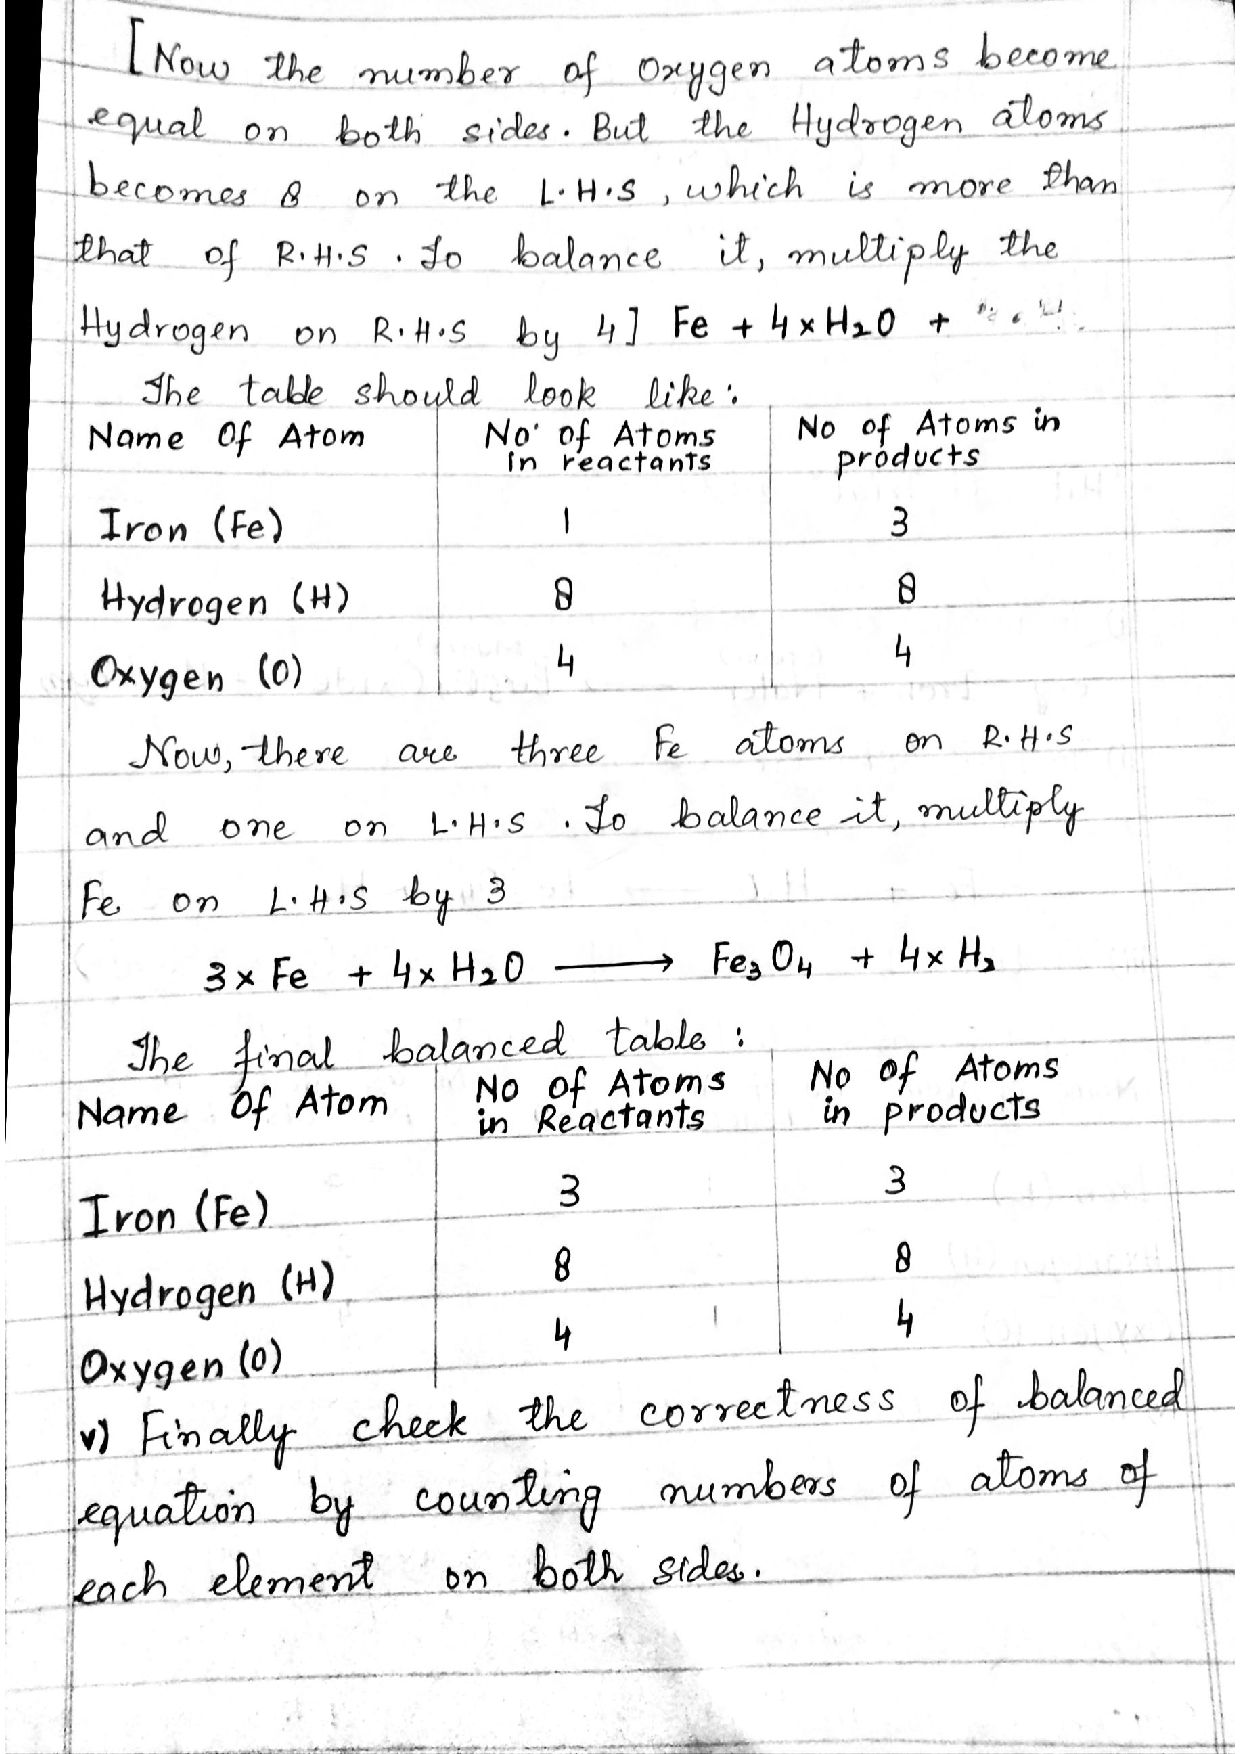 [Now the number of Oxygen atoms become
equal on both sides. But the Hydrogen atoms
becomes 8 on the L.H.S, which is more than
that of R.H.S. To balance it, multiply the
Hydrogen on R.H.S by 4] Fe + 4 x H2O +
The table should look like:
Name Of Atom | No. of Atoms in reactants | No of Atoms in products
Iron (Fe) | 1 | 3
Hydrogen (H) | 8 | 8
Oxygen (O) | 4 | 4
Now, there are three Fe atoms on R.H.S
and one on L.H.S. To balance it, multiply
Fe on L.H.S by 3
3 x Fe + 4 x H2O ⟶ Fe3O4 + 4 x H2
The final balanced table :
Name Of Atom | No of Atoms in Reactants | No of Atoms in products
Iron (Fe) | 3 | 3
Hydrogen (H) | 8 | 8
Oxygen (O) | 4 | 4
v) Finally check the correctness of balanced
equation by counting numbers of atoms of
each element on both sides.